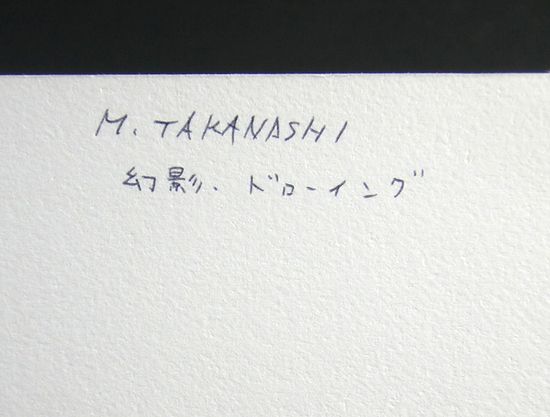 M. TAKANASHI
幻影. ドローイング